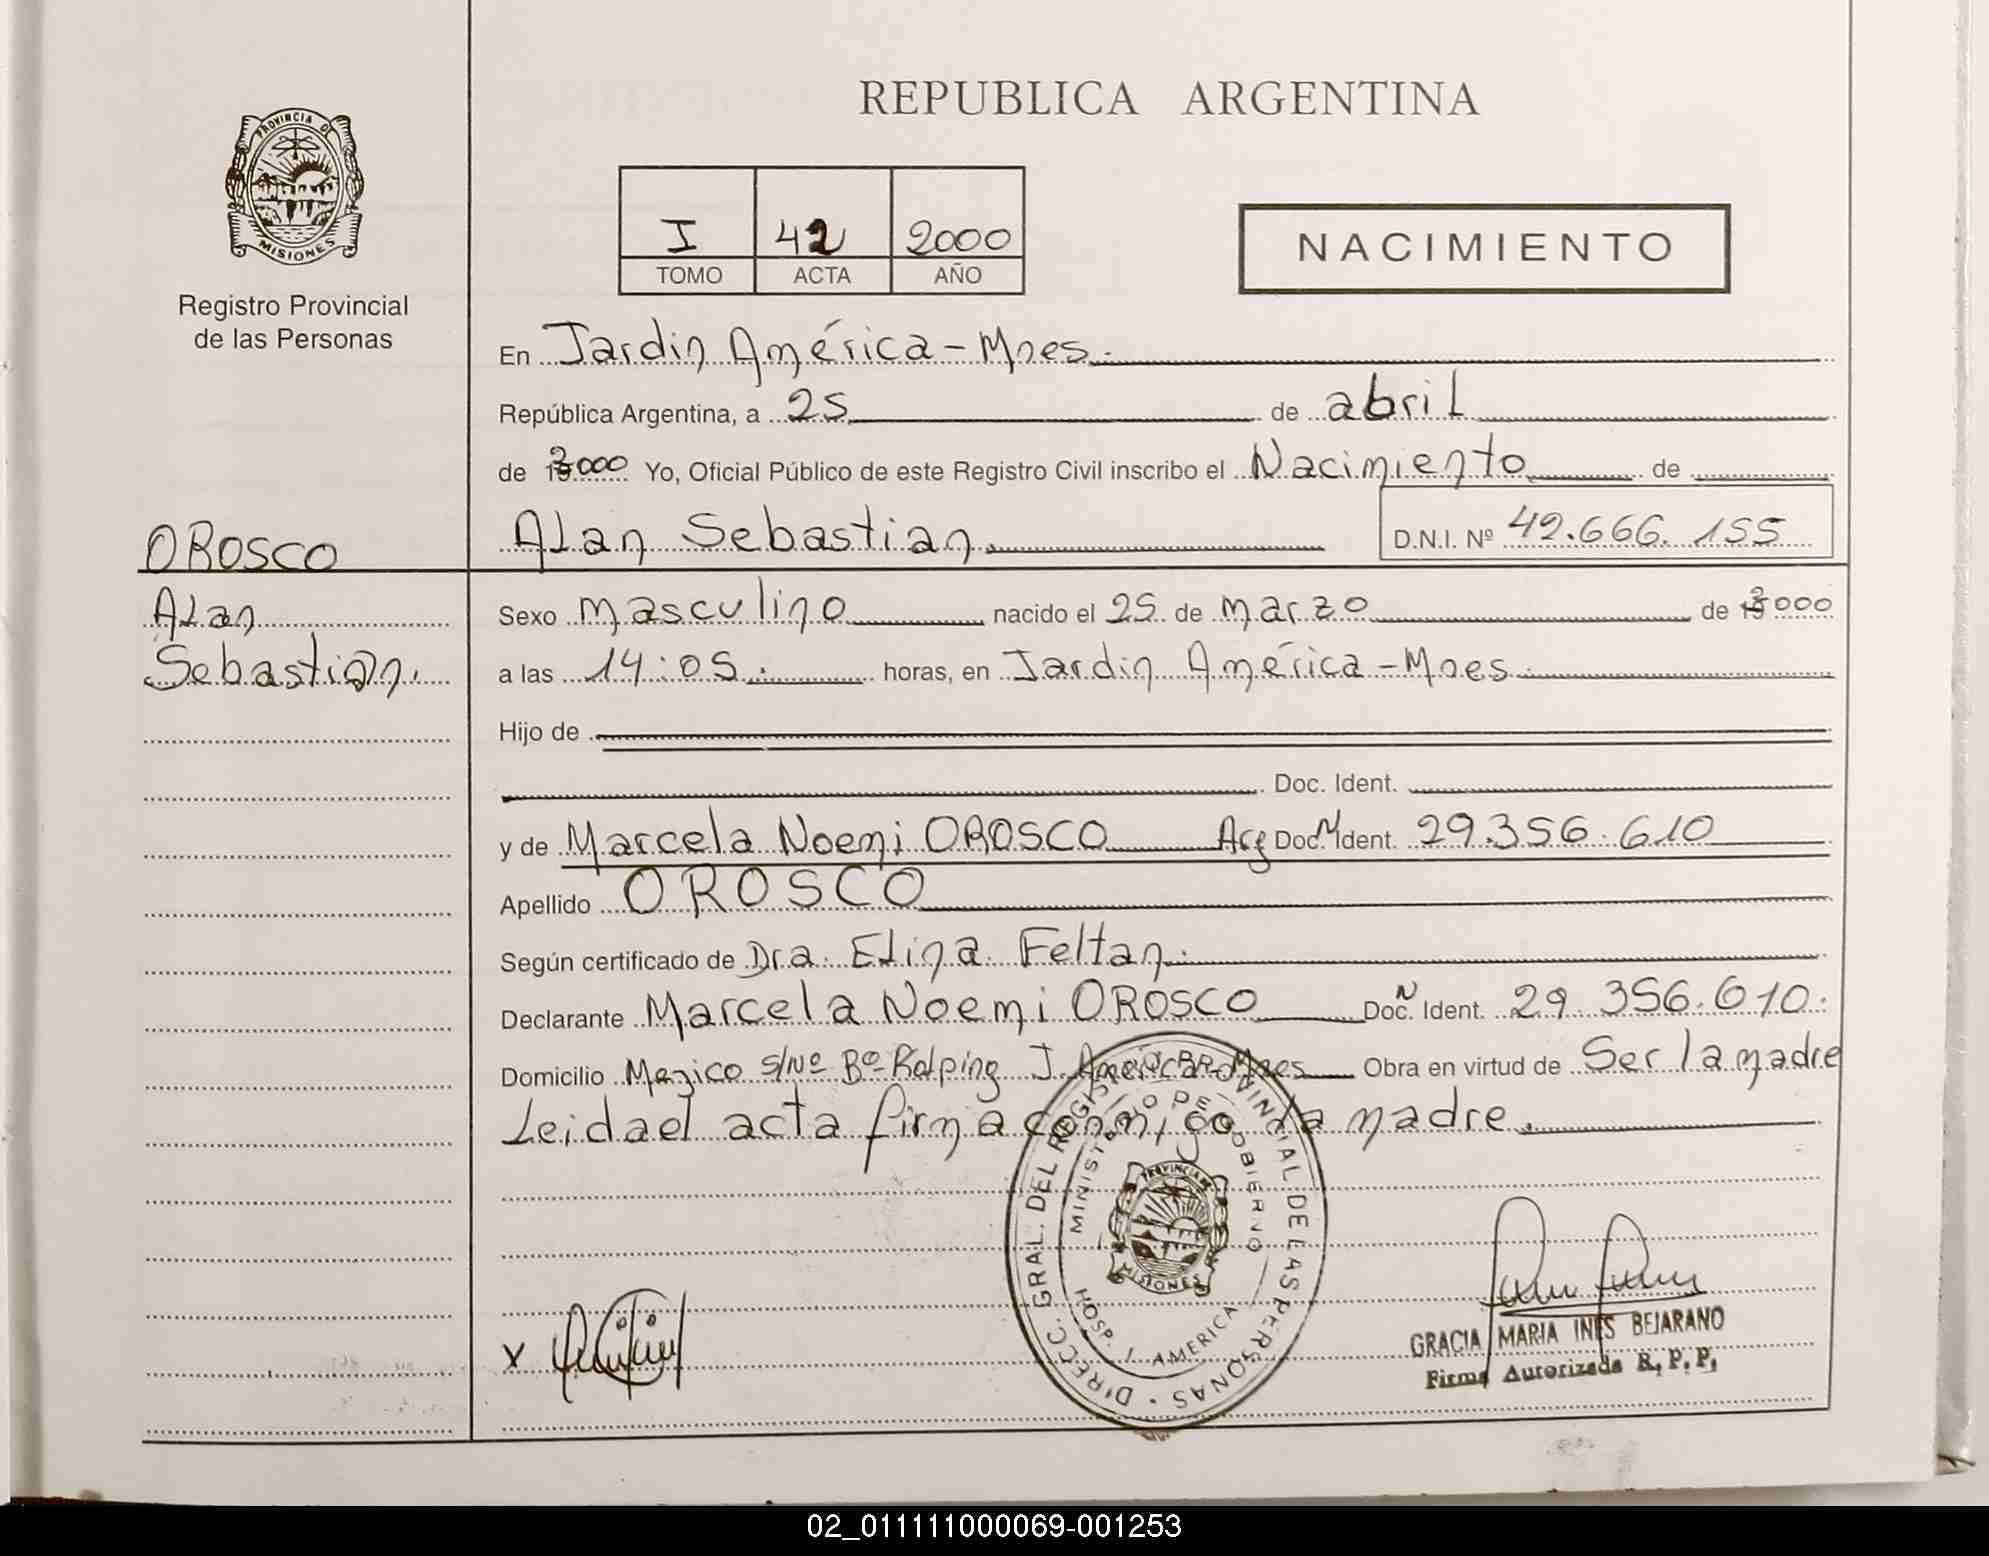 REPUBLICA ARGENTINA
PROVINCIA DE
MISIONES
Registro Provincial
de las Personas
I 42 2000
TOMO ACTA AÑO
NACIMIENTO
En Jardin América - Mnes.
República Argentina, a 25 de abril
de 2000 Yo, Oficial Público de este Registro Civil inscribo el Nacimiento de
OROSCO
Alan Sebastian
D.N.I. Nº 42.666.155
Alan
Sebastian.
Sexo masculino nacido el 25 de marzo de 2000
a las 14:05. horas, en Jardin América - Mnes.
Hijo de
Doc. Ident.
y de Marcela Noemi OROSCO Arg Doc. N Ident. 29.356.610
Apellido OROSCO
Según certificado de Dra. Elina Feltan.
Declarante Marcela Noemi OROSCO Doc. N Ident. 29.356.610.
Domicilio Mexico s/Nº Bº Kolping J. América - Mnes Obra en virtud de Ser la madre
Leida el acta firma conmigo la madre.
DIRECC. GRAL. DEL REGISTRO PROVINCIAL DE LAS PERSONAS
MINISTERIO DE GOBIERNO
PROVINCIA DE
MISIONES
HOSP. J. AMERICA
x
GRACIA MARIA INES BEJARANO
Firma Autorizada R.P.P.
02_011111000069-001253